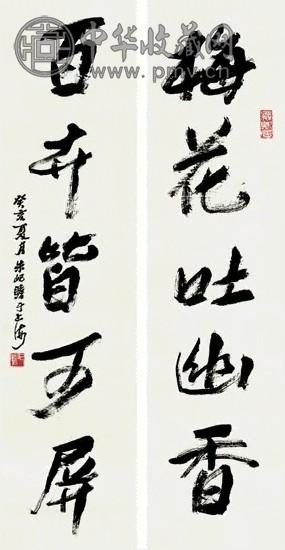 中华收藏网
www.pmv.cn
梅花吐幽香
百卉皆可屏
癸亥夏月朱屺瞻于上海